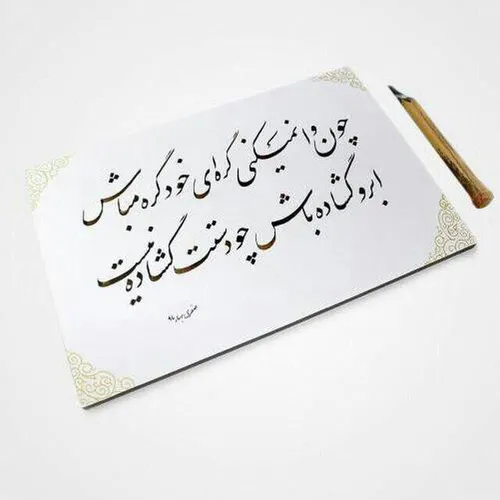 چون وا نمیکنی گره‌ای خود گره مباش
ابرو گشاده باش چو دستت گشاده نیست